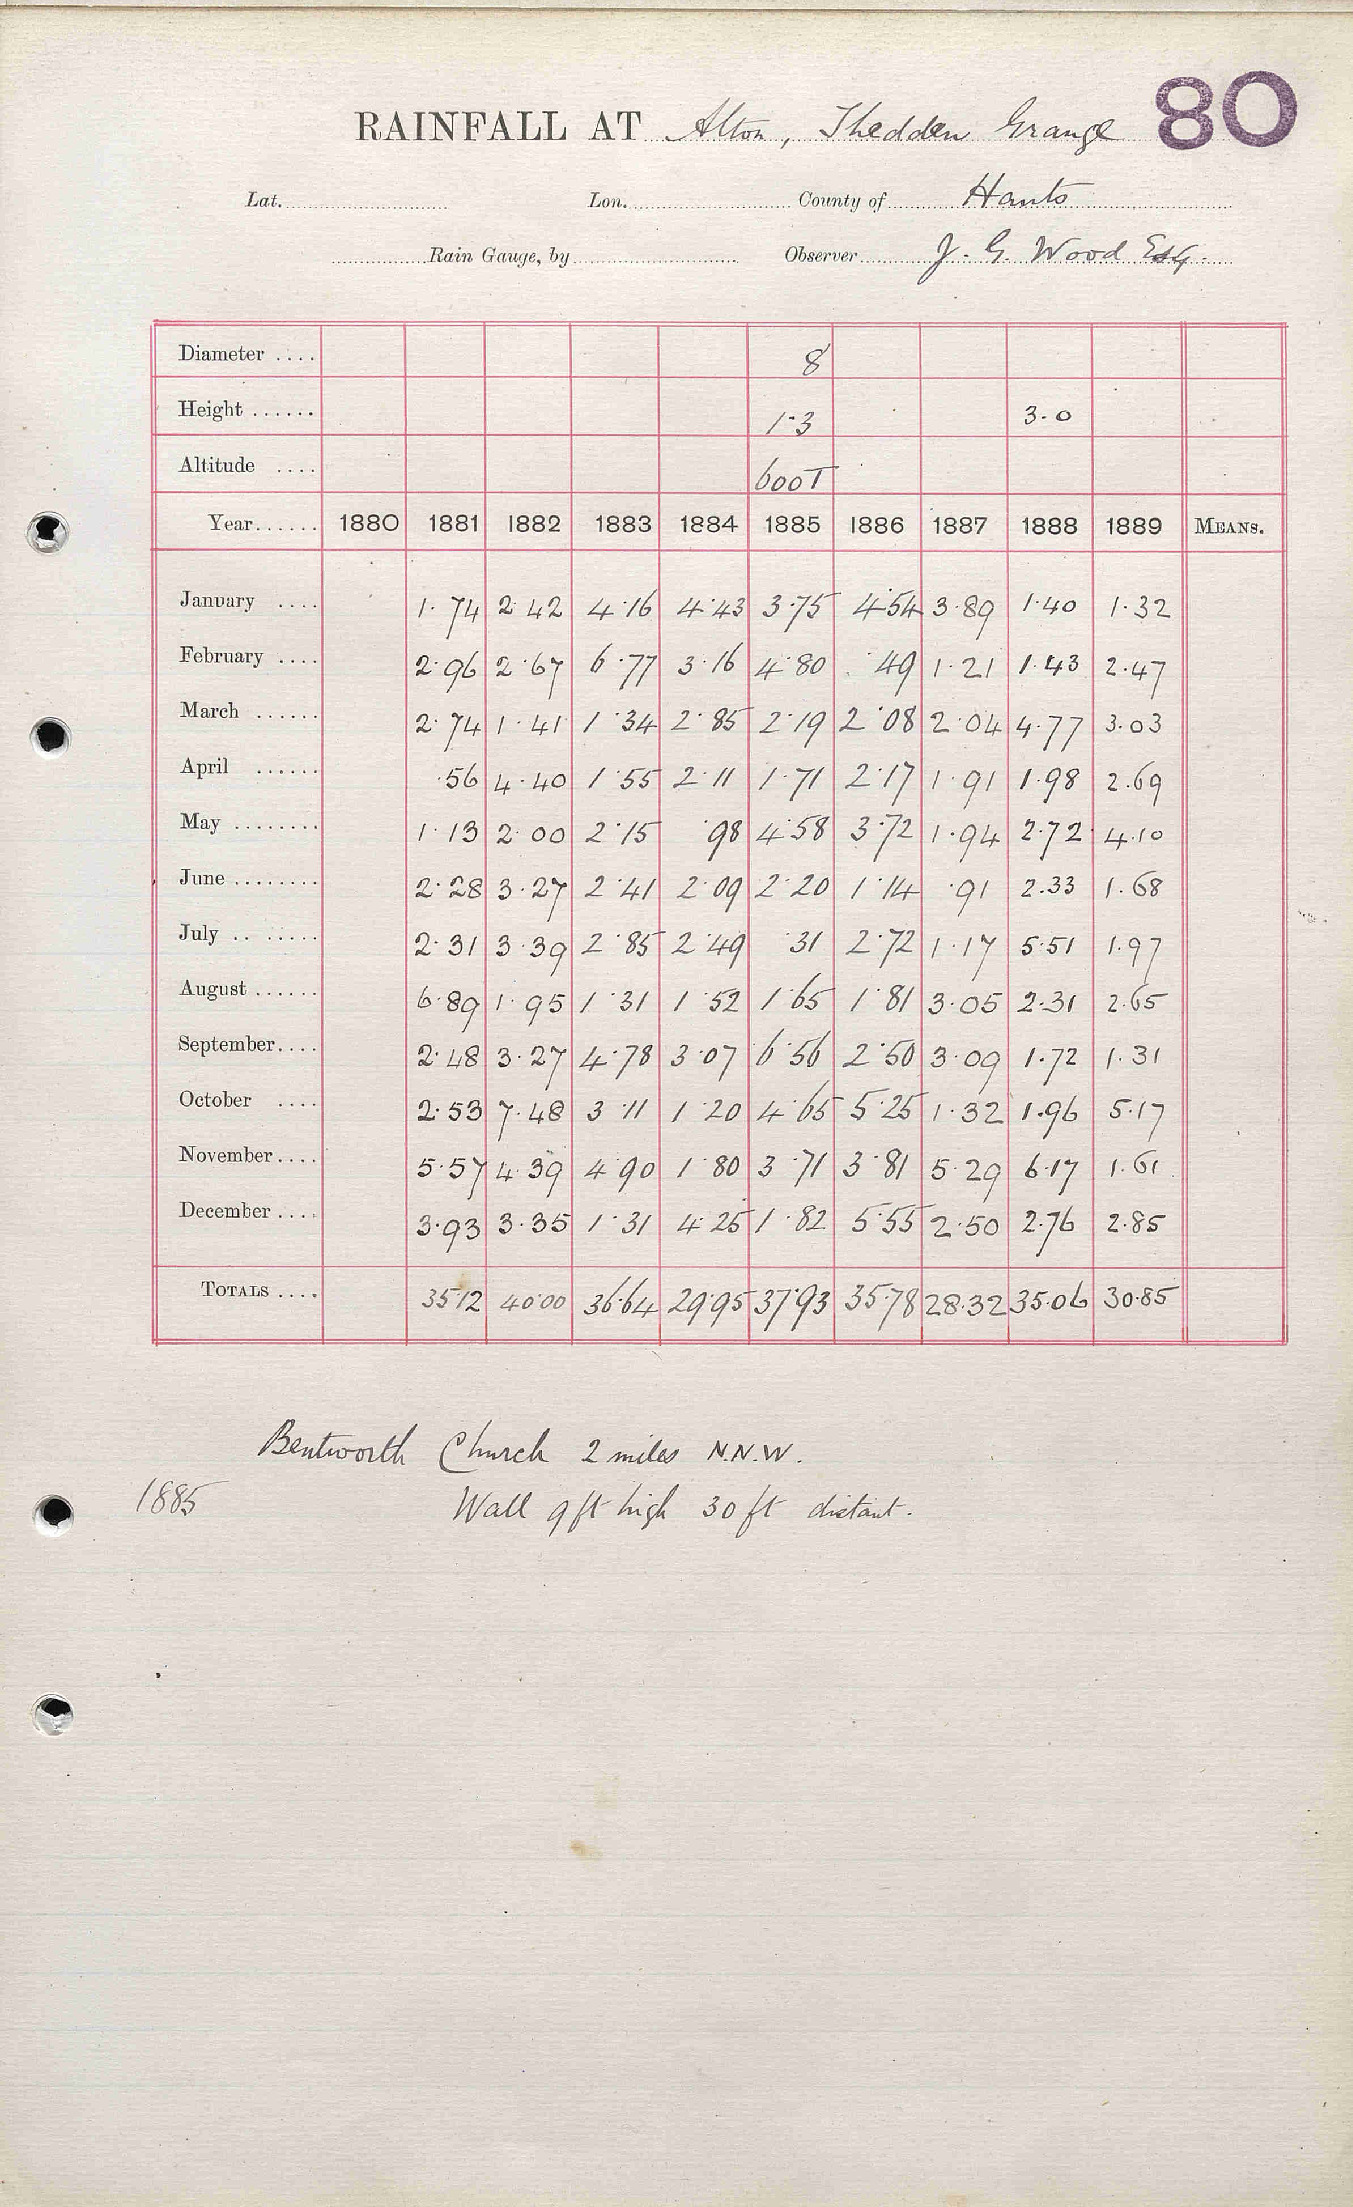 80
RAINFALL AT Alton, Thedden Grange
Lat. Lon. County of Hants
Rain Gauge, by Observer J. G. Wood Esq.
Diameter .... 8
Height ...... 1·3 3·0
Altitude .... 600T
Year...... 1880 1881 1882 1883 1884 1885 1886 1887 1888 1889 MEANS.
January .... 1·74 2·42 4·16 4·43 3·75 4·54 3·89 1·40 1·32
February .... 2·96 2·67 6·77 3·16 4·80 ·49 1·21 1·43 2·47
March ...... 2·74 1·41 1·34 2·85 2·19 2·08 2·04 4·77 3·03
April ...... ·56 4·40 1·55 2·11 1·71 2·17 1·91 1·98 2·69
May ........ 1·13 2·00 2·15 ·98 4·58 3·72 1·94 2·72 4·10
June ........ 2·28 3·27 2·41 2·09 2·20 1·14 ·91 2·33 1·68
July .. ...... 2·31 3·39 2·85 2·49 ·31 2·72 1·17 5·51 1·97
August ...... 6·89 1·95 1·31 1·52 1·65 1·81 3·05 2·31 2·65
September.... 2·48 3·27 4·78 3·07 6·56 2·50 3·09 1·72 1·31
October .... 2·53 7·48 3·11 1·20 4·65 5·25 1·32 1·96 5·17
November.... 5·57 4·39 4·90 1·80 3·71 3·81 5·29 6·17 1·61
December .... 3·93 3·35 1·31 4·25 1·82 5·55 2·50 2·76 2·85
TOTALS .... 35·12 40·00 36·64 29·95 37·93 35·78 28·32 35·06 30·85
Bentworth Church 2 miles N.N.W.
1885 Wall 9 ft high 30 ft distant.